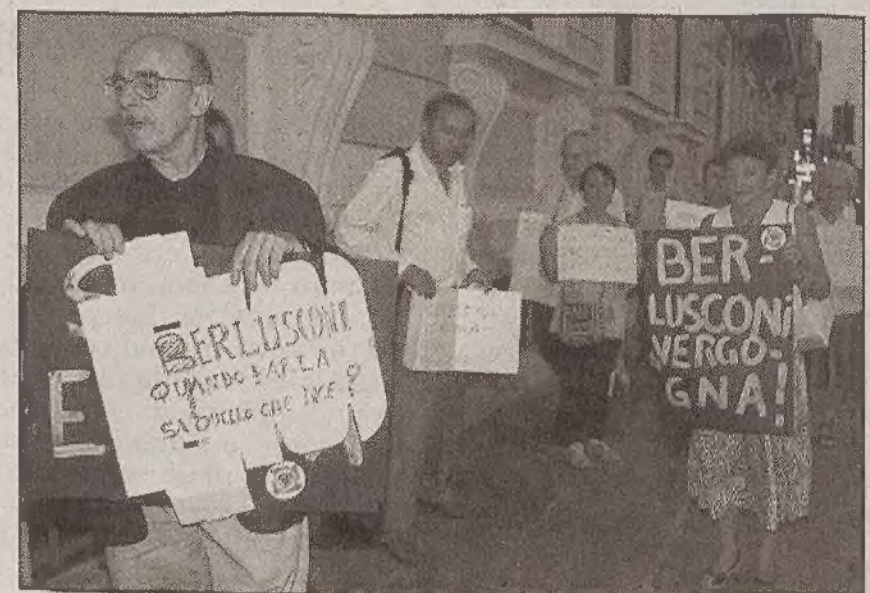 E
BERLUSCONI
QUANDO PARLA
SA QUELLO CHE DICE?
BER-
LUSCONI
VERGO-
GNA!